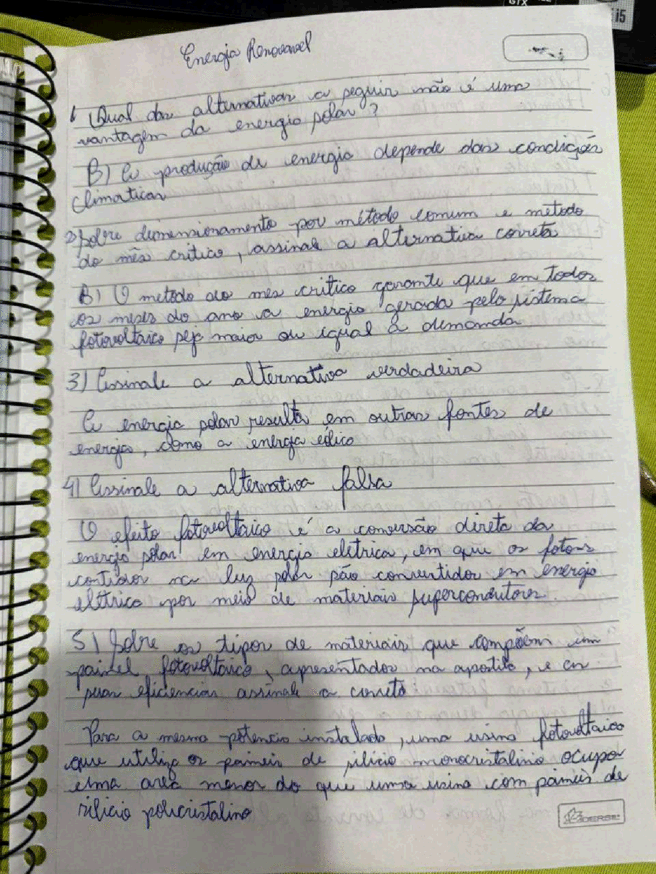 Energia Renovavel
i5
1 Qual das alternativas a seguir não é uma
vantagem da energia solar?
B) A produção de energia depende das condições
climaticas
2) Sobre dimensionamento por método comum e método
do mês critico, assinale a alternativa correta
B) O metodo do mes critico garante que em todos
os meses do ano a energia gerada pelo sistema
fotovoltaico seja maior ou igual a demanda
3) Assinale a alternativa verdadeira
A energia solar resulta em outras fontes de
energia, como a energia eólica
4) Assinale a alternativa falsa
O efeito fotovoltaico é a conversão direta da
energia solar em energia eletrica, em que os fotons
contidos na luz solar são convertidos em energia
elétrica por meio de materiais supercondutores
5) Sobre os tipos de materiais que compõem um
painel fotovoltaico, apresentados na apostila, e as
suas eficiencias assinale a correta
Para a mesma potencia instalada, uma usina fotovoltaica
que utiliza os paineis de silicio monocristalino ocupa
uma area menor do que uma usina com paineis de
silicio policristalino